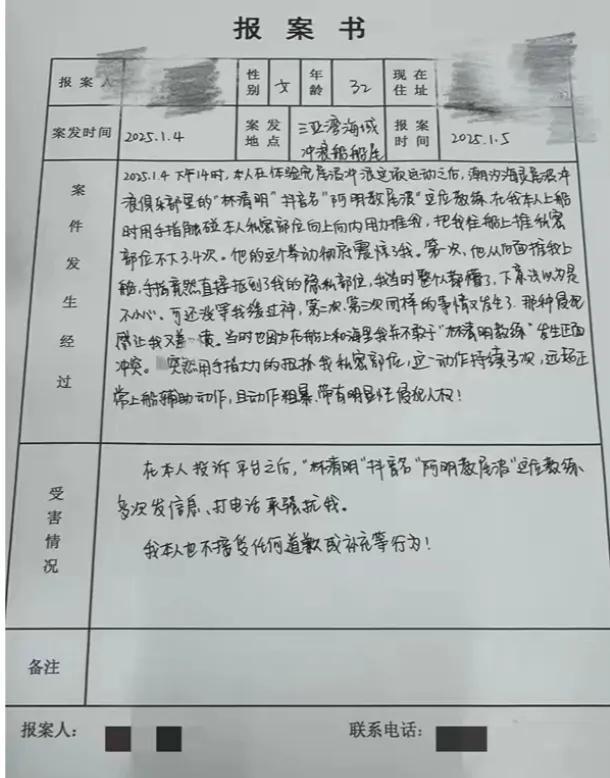 报案书
报案人 性别 女 年龄 32 现在住址
案发时间 2025.1.4 案发地点 三亚湾海域冲浪船船尾 报案时间 2025.1.5
案件发生经过
2025.1.4 下午14时,本人在体验完尾浪冲浪这项运动之后,潮为海灵尾浪冲
浪俱乐部里的“林清明”抖音名“阿明教尾波”这位教练,在我本人上船
时用手指触碰本人私密部位向上向内用力推我,把我往船上推私密
部位不下3.4次。他的这个举动彻底震惊了我。第一次,他从后面推我上
船,手指竟然直接抠到了我的隐私部位,我当时整个人都懵了,下意识以为是
不小心。可还没等我缓过神,第二次.第三次同样的事情又发生了.那种侵犯
感让我又羞又愤。当时也因为在船上和海里我并不敢于“林清明教练”发生正面
冲突。突然用手指大力的抠我私密部位,这一动作持续多次,远超正
常上船辅助动作,且动作粗暴、带有明显性侵犯人权!
受害情况
在本人投诉平台之后,“林清明”抖音名“阿明教尾波”这位教练、
多次发信息、打电话来骚扰我。
我本人也不接受任何道歉或补充等行为!
备注
报案人: 联系电话: